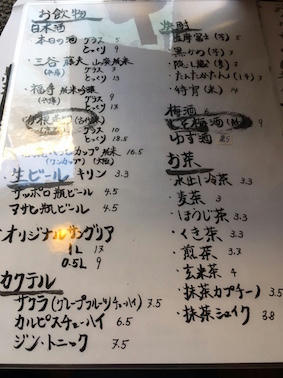 お飲物
日本酒
本日の酒 グラス 5
とっくり 9
・三谷藤夫 山廃純米
グラス 7
とっくり 13
・福寿 純米吟醸
グラス 9
とっくり
10
18.5
カップ 純米 16.5
(ワンカップ) (大阪)
・生ビール キリン 3.3
サッポロ瓶ビール 4.5
アサヒ瓶ビール 4.5
オリジナルサングリア
1L 17
0.5L 9
カクテル
サワラ(グレープフルーツチューハイ) 7.5
カルピスチューハイ 6.5
ジン・トニック 7.5
焼酎
・薩摩富士(芋) 5
・黒かつ(芋) 3
・たんたかたん(しそ) 3
梅酒 6
梅酒 9
ゆず酒
お茶
・水出し冷茶 3.3
・麦茶 3
・ほうじ茶 3.3
・くき茶 3.3
・煎茶 3.3
・玄米茶 4
・抹茶カプチーノ 3.5
・抹茶シェイク 3.8